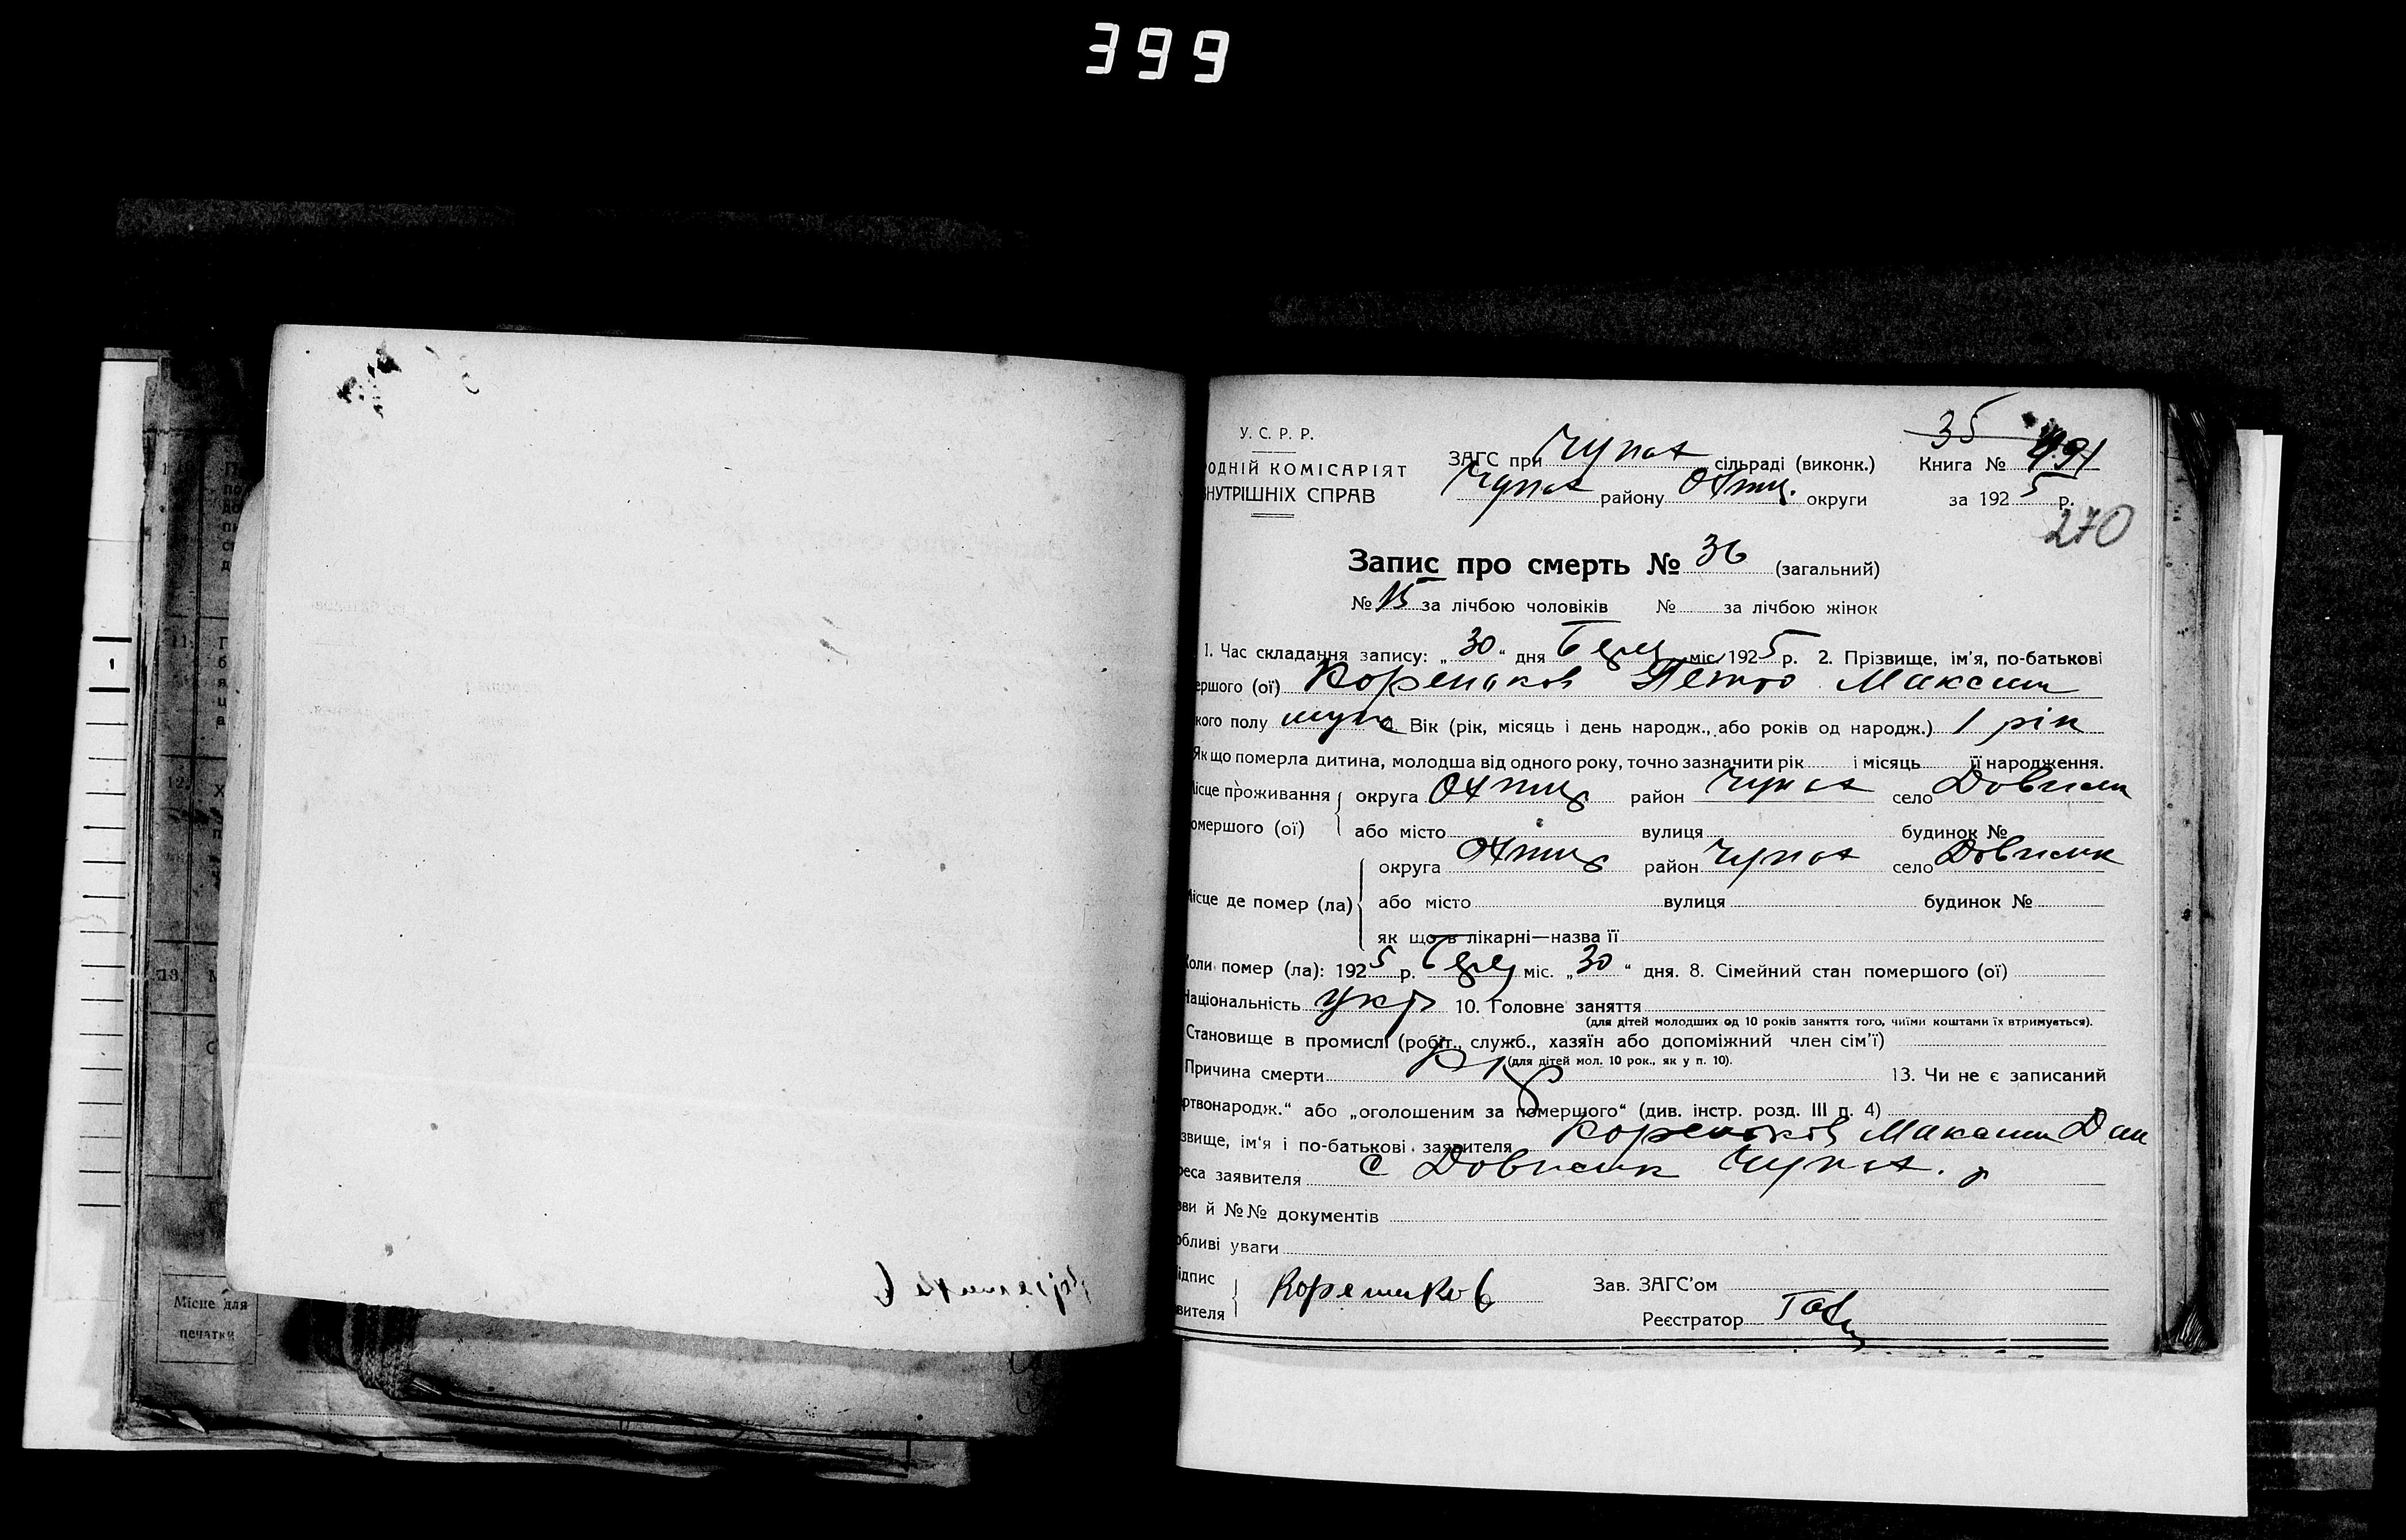 399
35
У. С. Р. Р.
ОДНІЙ КОМІСАРІЯТ
НУТРІШНІХ СПРАВ
ЗАГС при Чупах сільраді (виконк.)
Чупах району Охтиц. округи
Книга № 491
за 1925 р.
270
Запис про смерть № 36 (загальний)
№ 15 за лічбою чоловіків № за лічбою жінок
1. Час складання запису: „30“ дня міс. 1925 р. 2. Прізвище, ім'я, по-батькові
ершого (ої) Петро Максим
кого полу муж Вік (рік, місяць і день народж., або років од народж.) 1 рік
Як що померла дитина, молодша від одного року, точно зазначити рік і місяць її народження.
ісце проживання округа Охтиц район Чупах село Довжик
омершого (ої) або місто вулиця будинок №
округа Охтиц район Чупах село Довжик
ісце де помер (ла) або місто вулиця будинок №
як що в лікарні—назва її
Коли помер (ла): 1925 р. міс. „30“ дня. 8. Сімейний стан помершого (ої)
Національність укр 10. Головне заняття
(для дітей молодших од 10 років заняття того, чиїми коштами їх втримується).
Становище в промислі (робіт., служб., хазяїн або допоміжний член сім'ї)
(для дітей мол. 10 рок., як у п. 10).
Причина смерти 13. Чи не є записаний
ртвонародж.“ або „оголошеним за помершого“ (див. інстр. розд. III п. 4)
звище, ім'я і по-батькові заявителя Максим Дан
реса заявителя с Довжик Чупах. р
зви й №№ документів
обливі уваги
ідпис
вителя
Зав. ЗАГС'ом
Реєстратор
Місце для
печатки